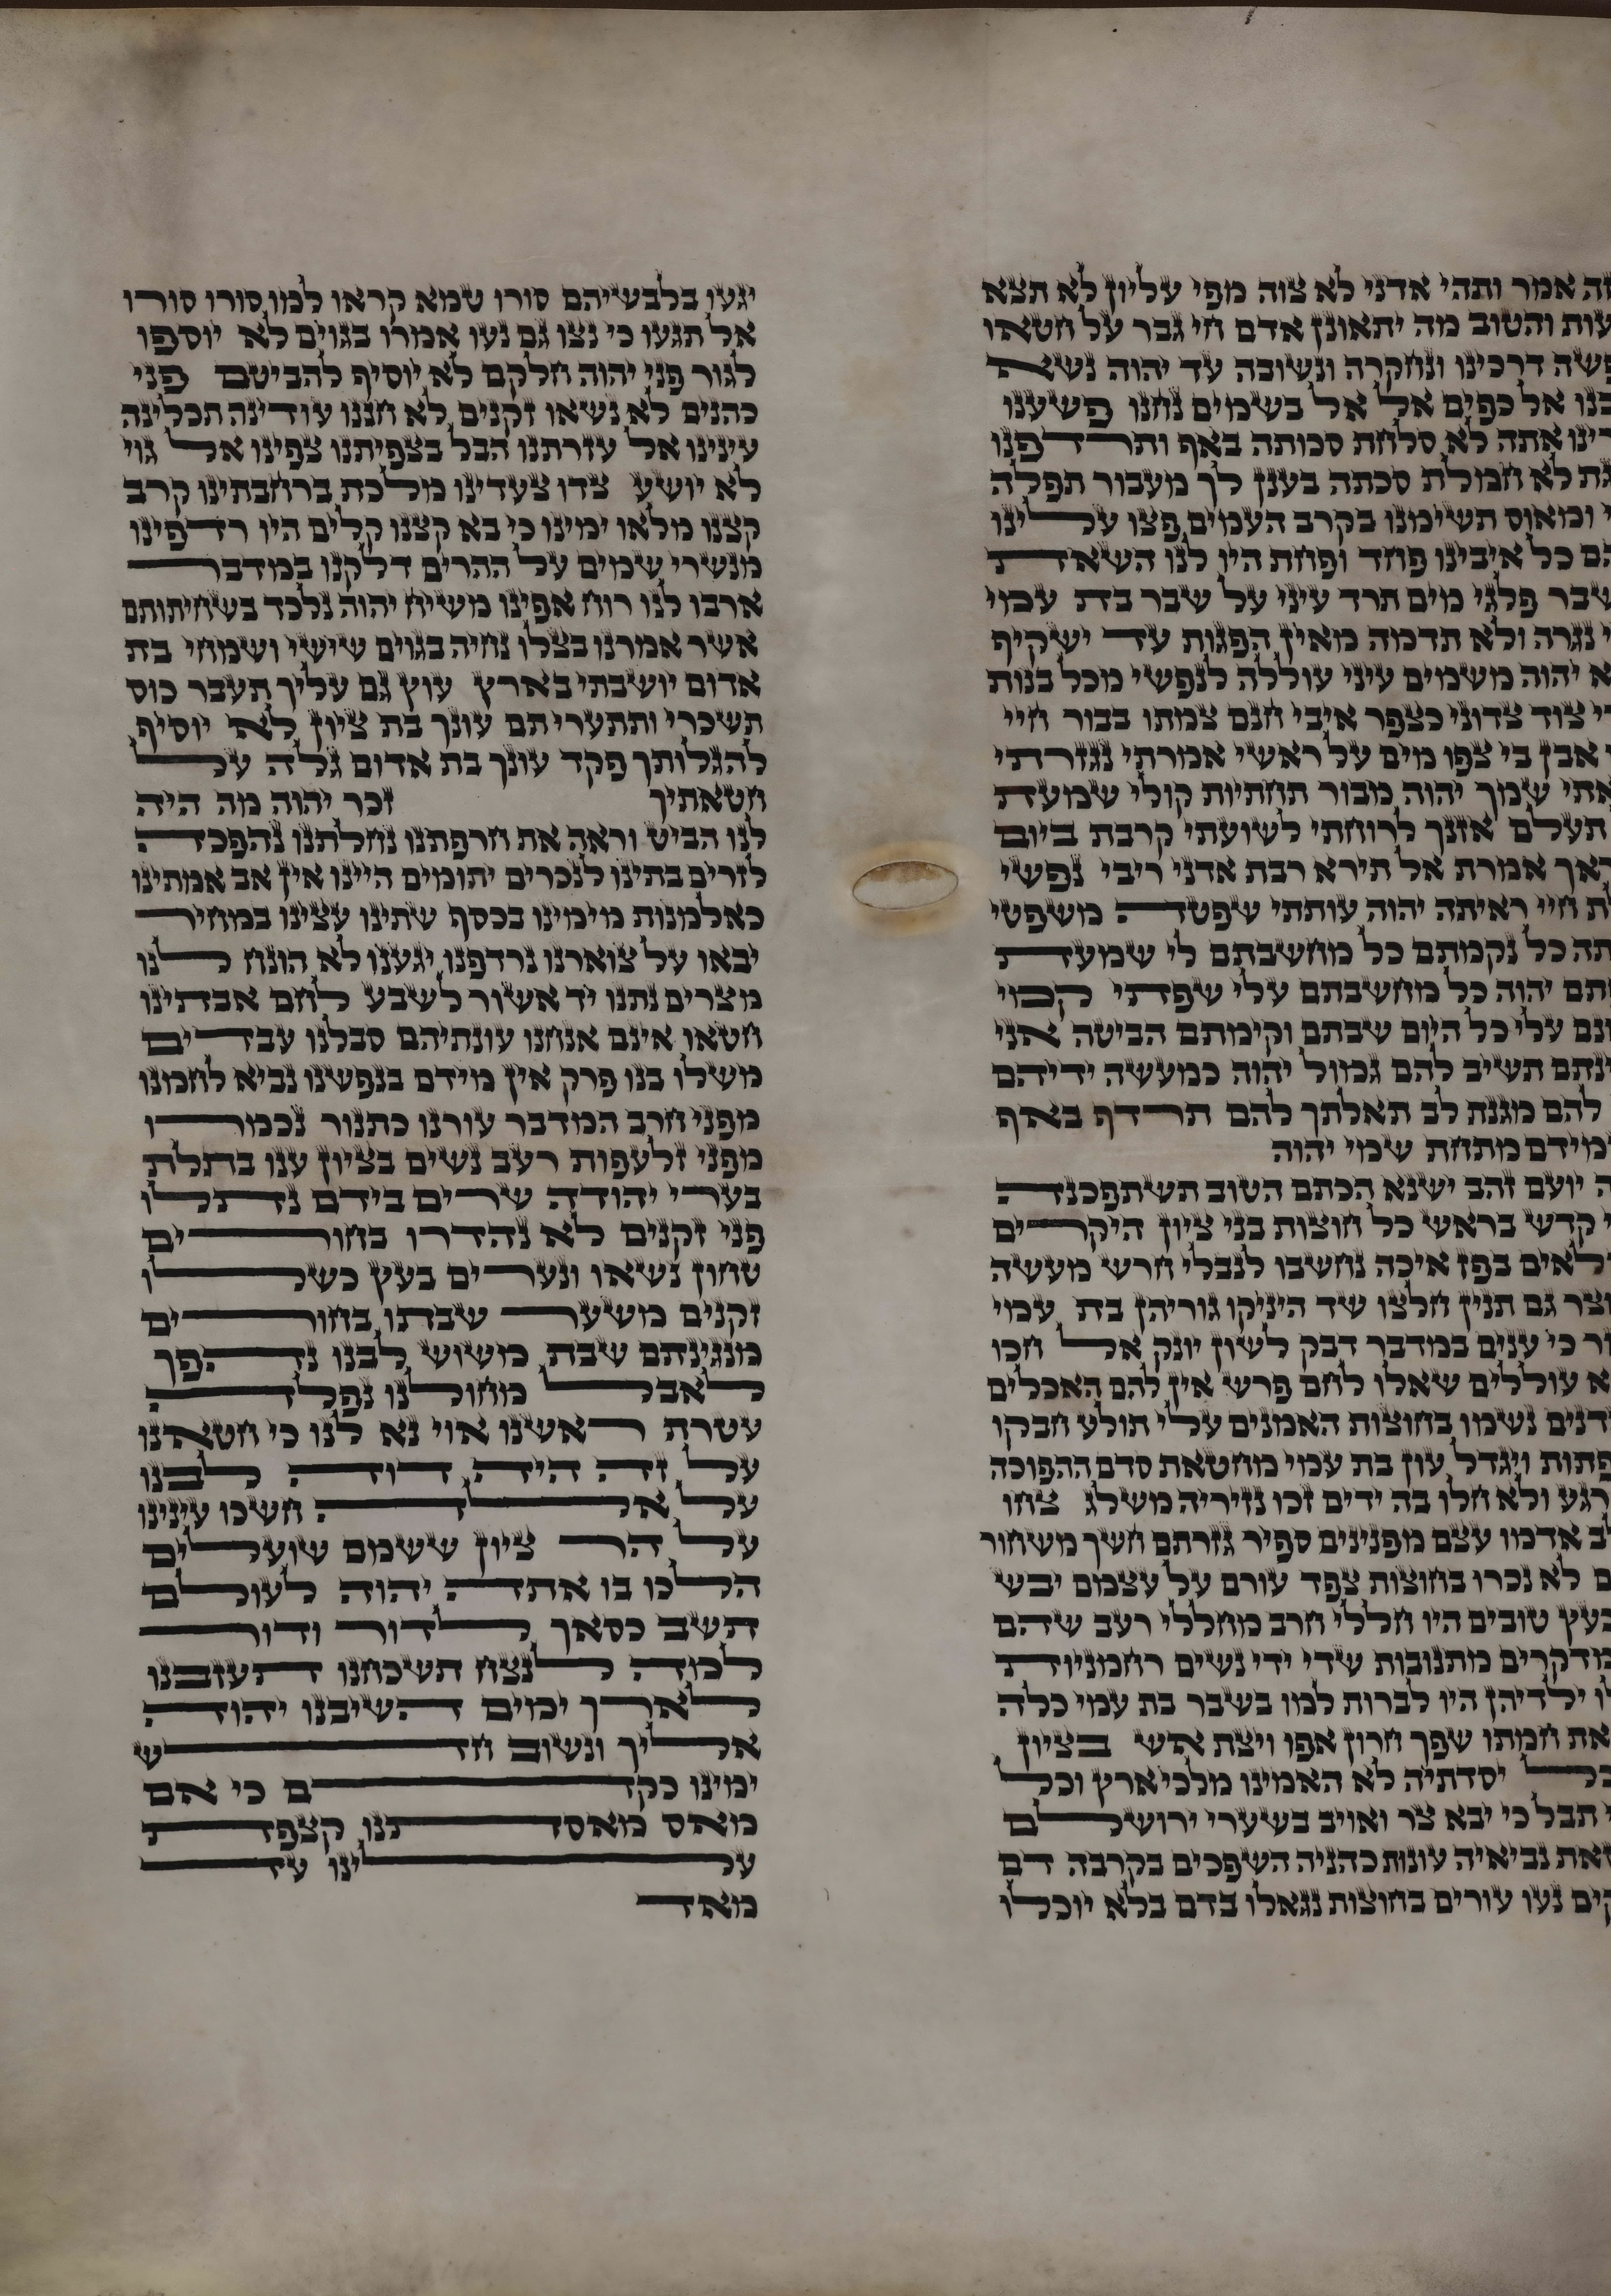 זה אמר ותהי אדני לא צוה מפי עליון לא תצא
עות והטוב מה יתאונן אדם חי גבר על חטאו
פשה דרכינו ונחקרה ונשובה עד יהוה נשא
בנו אל כפים אל אל בשמים נחנו פשענו
רינו אתה לא סלחת סכותה באף ותרדפנו
גת לא חמלת סכתה בענן לך מעבור תפלה
י ומאוס תשימנו בקרב העמים פצו עלינו
הם כל איבינו פחד ופחת היו לנו השאת
שבר פלגי מים תרד עיני על שבר בת עמי
י נגרה ולא תדמה מאין הפגות עד ישקיף
א יהוה משמים עיני עוללה לנפשי מכל בנות
רי צוד צדוני כצפר איבי חנם צמתו בבור חיי
ו אבן בי צפו מים על ראשי אמרתי נגזרתי
אתי שמך יהוה מבור תחתיות קולי שמעת
תעלם אזנך לרוחתי לשועתי קרבת ביום
ראך אמרת אל תירא רבת אדני ריבי נפשי
לת חיי ראיתה יהוה עותתי שפטה משפטי
תה כל נקמתם כל מחשבתם לי שמעת
תם יהוה כל מחשבתם עלי שפתי קמי
ונם עלי כל היום שבתם וקימתם הביטה אני
ינתם תשיב להם גמול יהוה כמעשה ידיהם
להם מגנת לב תאלתך להם תרדף באף
מידם מתחת שמי יהוה
ה יועם זהב ישנא הכתם הטוב תשתפכנה
י קדש בראש כל חוצות בני ציון היקרים
לאים בפז איכה נחשבו לנבלי חרש מעשה
וצר גם תנין חלצו שד היניקו גוריהן בת עמי
ור כי ענים במדבר דבק לשון יונק אל חכו
א עוללים שאלו לחם פרש אין להם האכלים
דנים נשמו בחוצות האמנים עלי תולע חבקו
פתות ויגדל עון בת עמי מחטאת סדם ההפוכה
רגע ולא חלו בה ידים זכו נזיריה משלג צחו
לב אדמו עצם מפנינים ספיר גזרתם חשך משחור
ם לא נכרו בחוצות צפד עורם על עצמם יבש
כעץ טובים היו חללי חרב מחללי רעב שהם
מדקרים מתנובות שדי ידי נשים רחמניות
לו ילדיהן היו לברות למו בשבר בת עמי כלה
את חמתו שפך חרון אפו ויצת אש בציון
כל יסדתיה לא האמינו מלכי ארץ וכל
י תבל כי יבא צר ואויב בשערי ירושלם
את נביאיה עונות כהניה השפכים בקרבה דם
קים נעו עורים בחוצות נגאלו בדם בלא יוכלו
יגעו בלבשיהם סורו טמא קראו למו סורו סורו
אל תגעו כי נצו גם נעו אמרו בגוים לא יוספו
לגור פני יהוה חלקם לא יוסיף להביטם פני
כהנים לא נשאו זקנים לא חננו עודינה תכלינה
עינינו אל עזרתנו הבל בצפיתנו צפינו אל גוי
לא יושע צדו צעדינו מלכת ברחבתינו קרב
קצנו מלאו ימינו כי בא קצנו קלים היו רדפינו
מנשרי שמים על ההרים דלקנו במדבר
ארבו לנו רוח אפינו משיח יהוה נלכד בשחיתותם
אשר אמרנו בצלו נחיה בגוים שישי ושמחי בת
אדום יושבתי בארץ עוץ גם עליך תעבר כוס
תשכרי ותתערי תם עונך בת ציון לא יוסיף
להגלותך פקד עונך בת אדום גלה על
חטאתיך זכר יהוה מה היה
לנו הביט וראה את חרפתנו נחלתנו נהפכה
לזרים בתינו לנכרים יתומים היינו אין אב אמתינו
כאלמנות מימינו בכסף שתינו עצינו במחיר
יבאו על צוארנו נרדפנו יגענו לא הונח לנו
מצרים נתנו יד אשור לשבע לחם אבתינו
חטאו אינם אנחנו עונתיהם סבלנו עבדים
משלו בנו פרק אין מידם בנפשנו נביא לחמנו
מפני חרב המדבר עורנו כתנור נכמרו
מפני זלעפות רעב נשים בציון ענו בתלת
בערי יהודה שרים בידם נתלו
פני זקנים לא נהדרו בחורים
טחון נשאו ונערים בעץ כשלו
זקנים משער שבתו בחורים
מנגינתם שבת משוש לבנו נהפך
לאבל מחולנו נפלה
עטרת ראשנו אוי נא לנו כי חטאנו
על זה היה דוה לבנו
על אלה חשכו עינינו
על הר ציון ששמם שועלים
הלכו בו אתה יהוה לעולם
תשב כסאך לדור ודור
למה לנצח תשכחנו תעזבנו
לארך ימים השיבנו יהוה
אליך ונשוב חדש
ימינו כקדם כי אם
מאס מאסתנו קצפת
עלינו עד
מאד